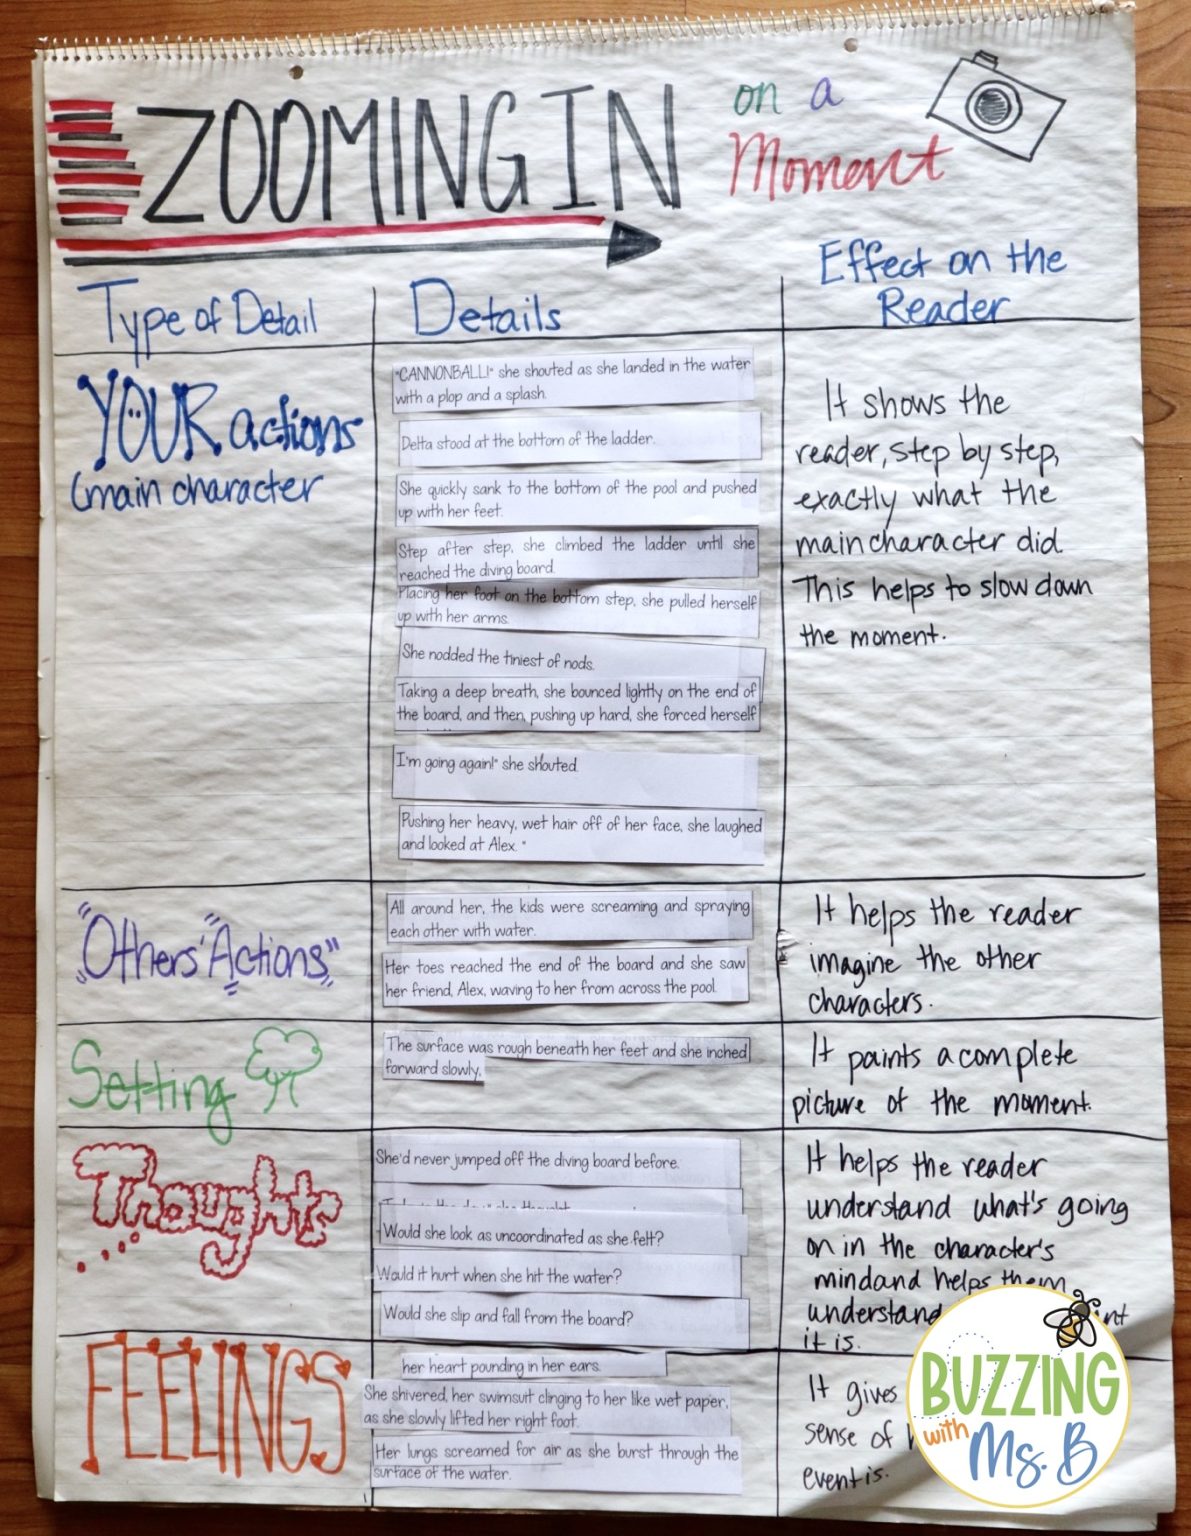 ZOOMING IN
on a
Moment
Type of Detail
Details
Effect on the
Reader
YOUR actions
(main character
"CANNONBALL!" she shouted as she landed in the water
with a plop and a splash.
Delta stood at the bottom of the ladder.
She quickly sank to the bottom of the pool and pushed
up with her feet.
Step after step, she climbed the ladder until she
reached the diving board.
Placing her foot on the bottom step, she pulled herself
up with her arms.
She nodded the tiniest of nods.
Taking a deep breath, she bounced lightly on the end of
the board, and then, pushing up hard, she forced herself
I'm going again!" she shouted.
Pushing her heavy, wet hair off of her face, she laughed
and looked at Alex. "
It shows the
reader, step by step,
exactly what the
main character did.
This helps to slow down
the moment.
"Others' Actions"
All around her, the kids were screaming and spraying
each other with water.
Her toes reached the end of the board and she saw
her friend, Alex, waving to her from across the pool.
It helps the reader
imagine the other
characters.
Setting
The surface was rough beneath her feet and she inched
forward slowly.
It paints a complete
picture of the moment.
Thoughts
She'd never jumped off the diving board before.
Would she look as uncoordinated as she felt?
Would it hurt when she hit the water?
Would she slip and fall from the board?
It helps the reader
understand what's going
on in the character's
mind and helps them
understand
it is.
FEELINGS
her heart pounding in her ears.
She shivered, her swimsuit clinging to her like wet paper,
as she slowly lifted her right foot.
Her lungs screamed for air as she burst through the
surface of the water.
It gives
sense of
event is.
BUZZING
with
Ms. B